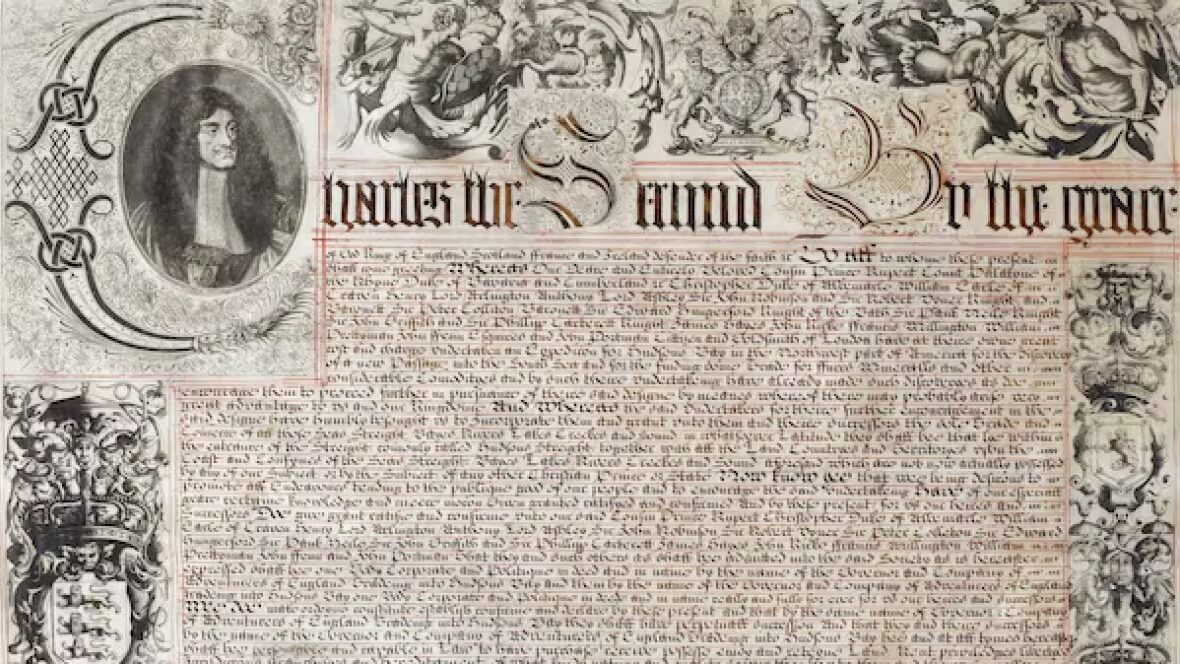 Charles the Second By the grace
of God King of England Scotland ffrance and Ireland defender of the faith &c To all to whome these present
shall come greeting Whereas Our Deare and Entirely Beloved Cousin Prince Rupert Count Palatyne of
the Rhyne Duke of Bavaria and Cumberland &c Christopher Duke of Albemarle William Earle of
Craven Henry Lord Arlington Anthony Lord Ashley Sir John Robinson and Sir Robert Vyner Knight and
Baronett Sir Peter Colliton Baronett Sir Edward Hungerford Knight of the Bath Sir Paul Neele Knight
Sir John Griffith and Sir Phillipp Carteret Knight James Hayes John Kirke ffrancis Millington William
Prettyman John ffenn Esquires and John Portman Citizen and Goldsmith of London have at theire owne great
cost and charge undertaken an Expedicon for Hudsons Bay in the Northwest part of America for the discovery
of a new Passage into the South Sea and for the finding some Trade for ffurrs Mineralls and other
considerable Comodityes and by such theire undertakeing have already made such discoveryes as doe
encourage them to proceed further in pursuance of theire said designe by meanes whereof there may probably arise very
great advantage to us and our Kingdome And Whereas the said Undertakers for theire further encouragement in the
said designe have humbly besought us to Incorporate them and grant unto them and theire successors the sole Trade and
Comerce of all those Seas Streight Bayes Rivers Lakes Creekes and Sound in whatsoever Latitude they shall bee that lie within
the entrance of the Streight comonly called Hudsons Streight together with all the Land Countries and Territoryes upon the
Coast and Confynes of the Seas Streight Bayes Lakes Rivers Creekes and Sound aforesaid which are not now actually possessed
by any of our Subject or by the Subject of any other Christian Prince or State Now know yee that wee being desirous to
promote all Endeavours tending to the publique good of our people and to encourage the said undertakeing Have of our especiall
grace certeyne knowledge and meere mocon Given granted ratified and confirmed and by these present for us our heires and
successors Doe give grant ratifie and confirme unto our said Cousin Prince Rupert Christopher Duke of Albemarle William
Earle of Craven Henry Lord Arlington Anthony Lord Ashley Sir John Robinson Sir Robert Vyner Sir Peter Colleton Sir Edward
Hungerford Sir Paul Neele Sir John Griffith and Sir Phillipp Carterett James Hayes John Kirke ffrancis Millington William
Prettyman John ffenn and John Portman that they and such others as shall bee admitted into the said Society as is
expressed shall bee one Body Corporate and Politique in deed and in name by the name of the Governor and Company of
Adventurers of England tradeing into Hudsons Bay and them by the name of the Governor and Company of Adventurers of England
tradeing into Hudsons Bay one Body Corporate and Politique in deede and in name really and fully for ever for us our heires and successors
Wee Doe make ordeyne constitute establish confirme and declare by these present and that by the same name of Governor Company
of Adventurers of England Tradeing into Hudsons Bay they shall have perpetuall succession And that they and theire successors
by the name of the Governor and Company of Adventurers of England Tradeing into Hudsons Bay bee and at all tymes hereafter
shall bee persons able and capable in Law to have purchase receive possess enjoy and reteyne Land